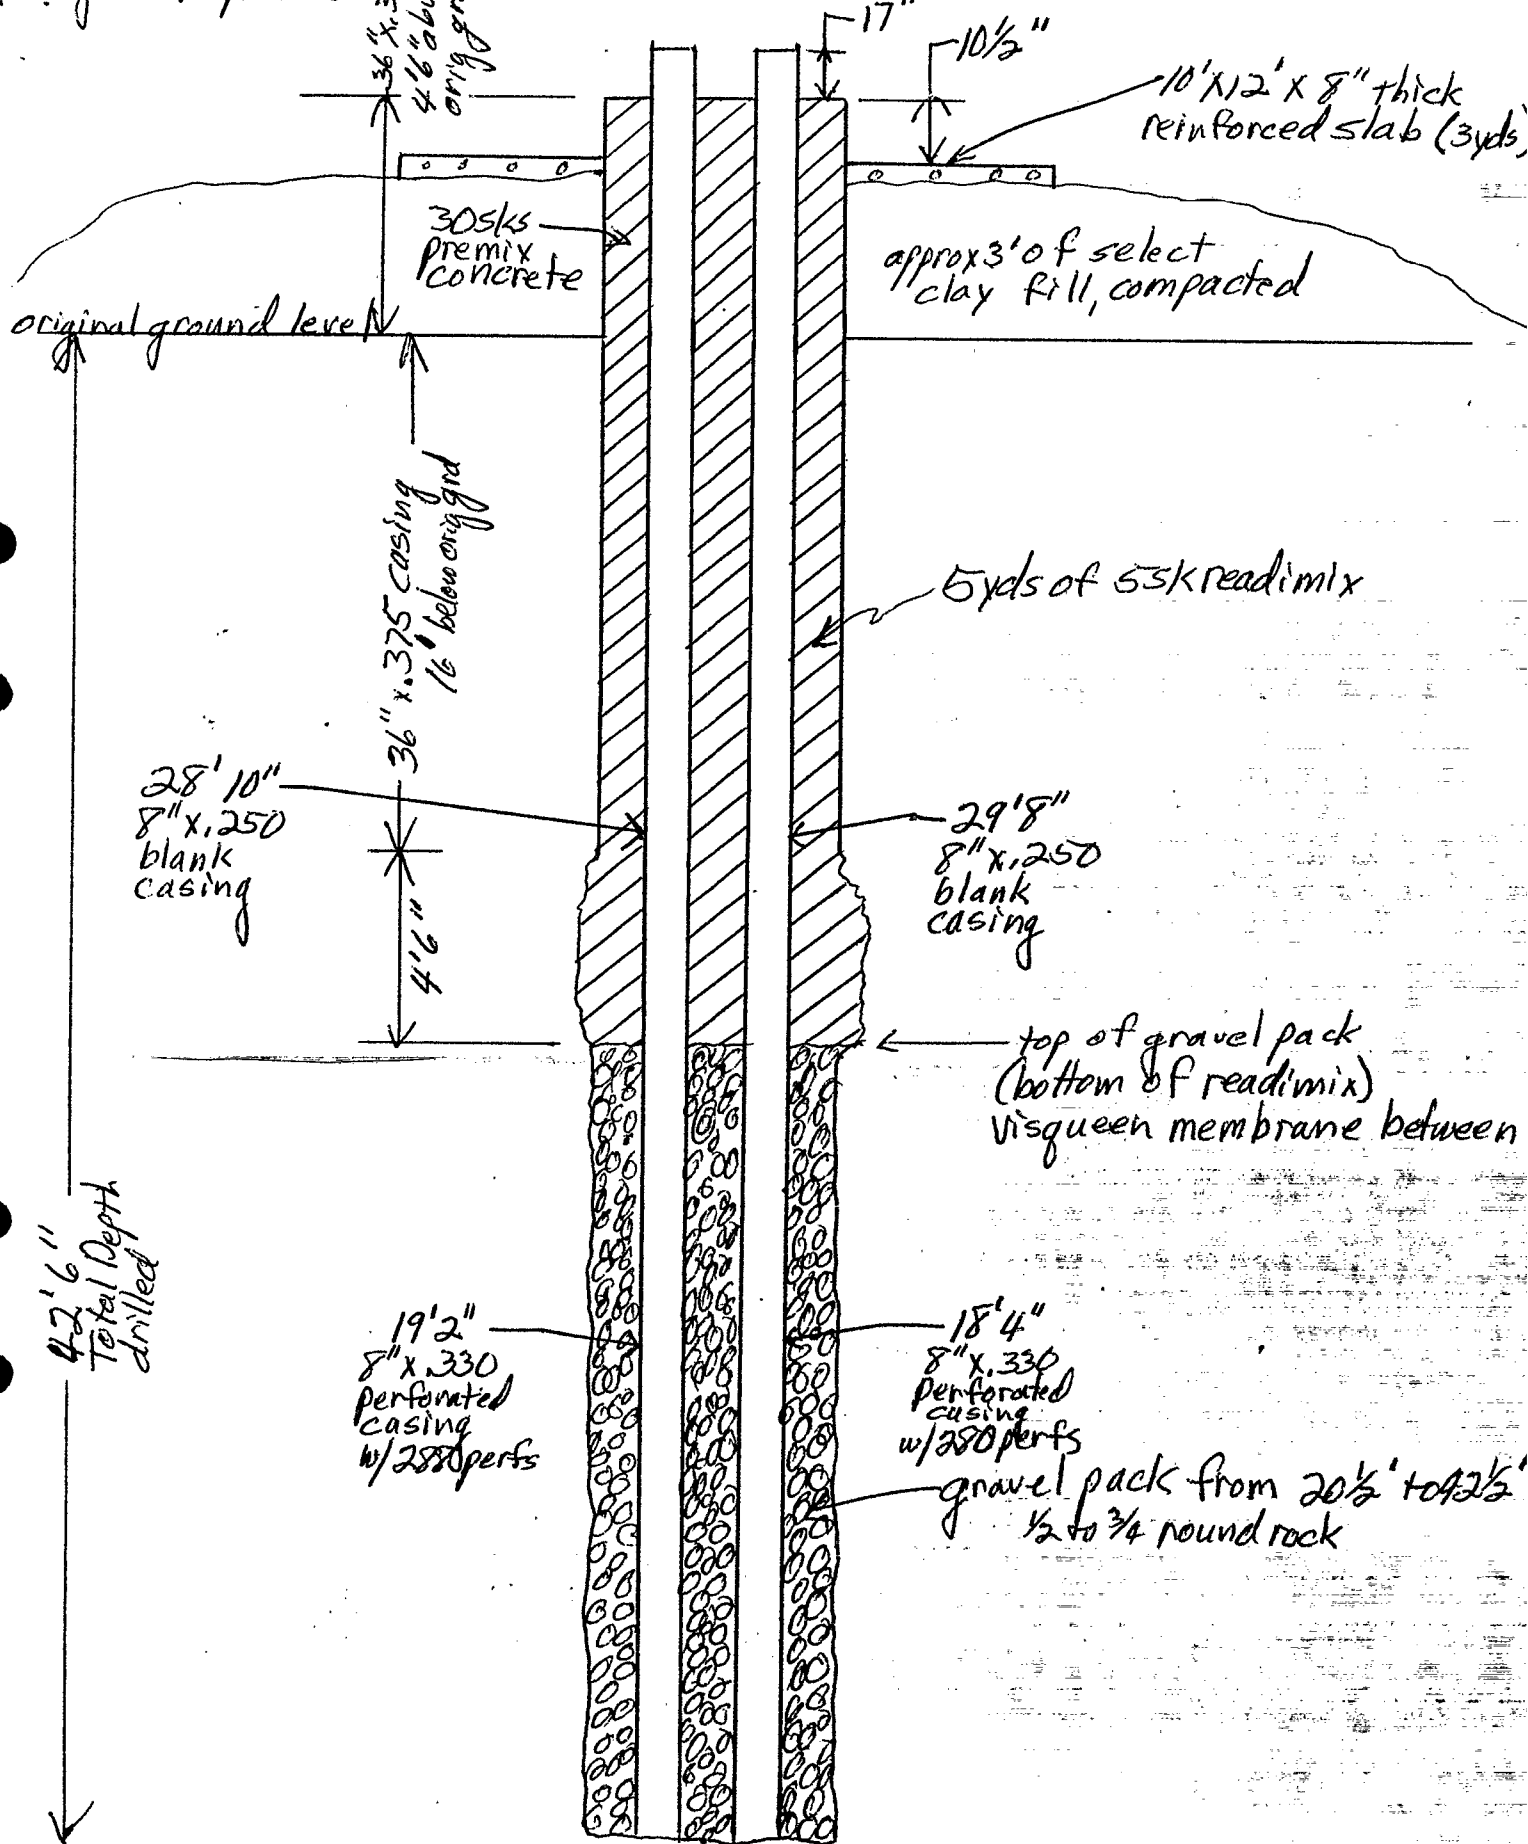 36" x .3
4'6" abo
orig gr
17"
10½"
10' x 12' x 8" thick
reinforced slab (3yds)
30sks
premix
concrete
approx 3' of select
clay fill, compacted
original ground level
36" x .375 casing
16' below orig grd
5yds of 5sk readimix
28' 10"
8" x .250
blank
casing
29'8"
8" x .250
blank
casing
4'6"
top of gravel pack
(bottom of readimix)
Visqueen membrane between
42'6"
Total Depth
drilled
19'2"
8" x .330
perforated
casing
w/ 288 perfs
18'4"
8" x .330
perforated
casing
w/ 280 perfs
gravel pack from 20½' to 42½'
½ to ¾ round rock